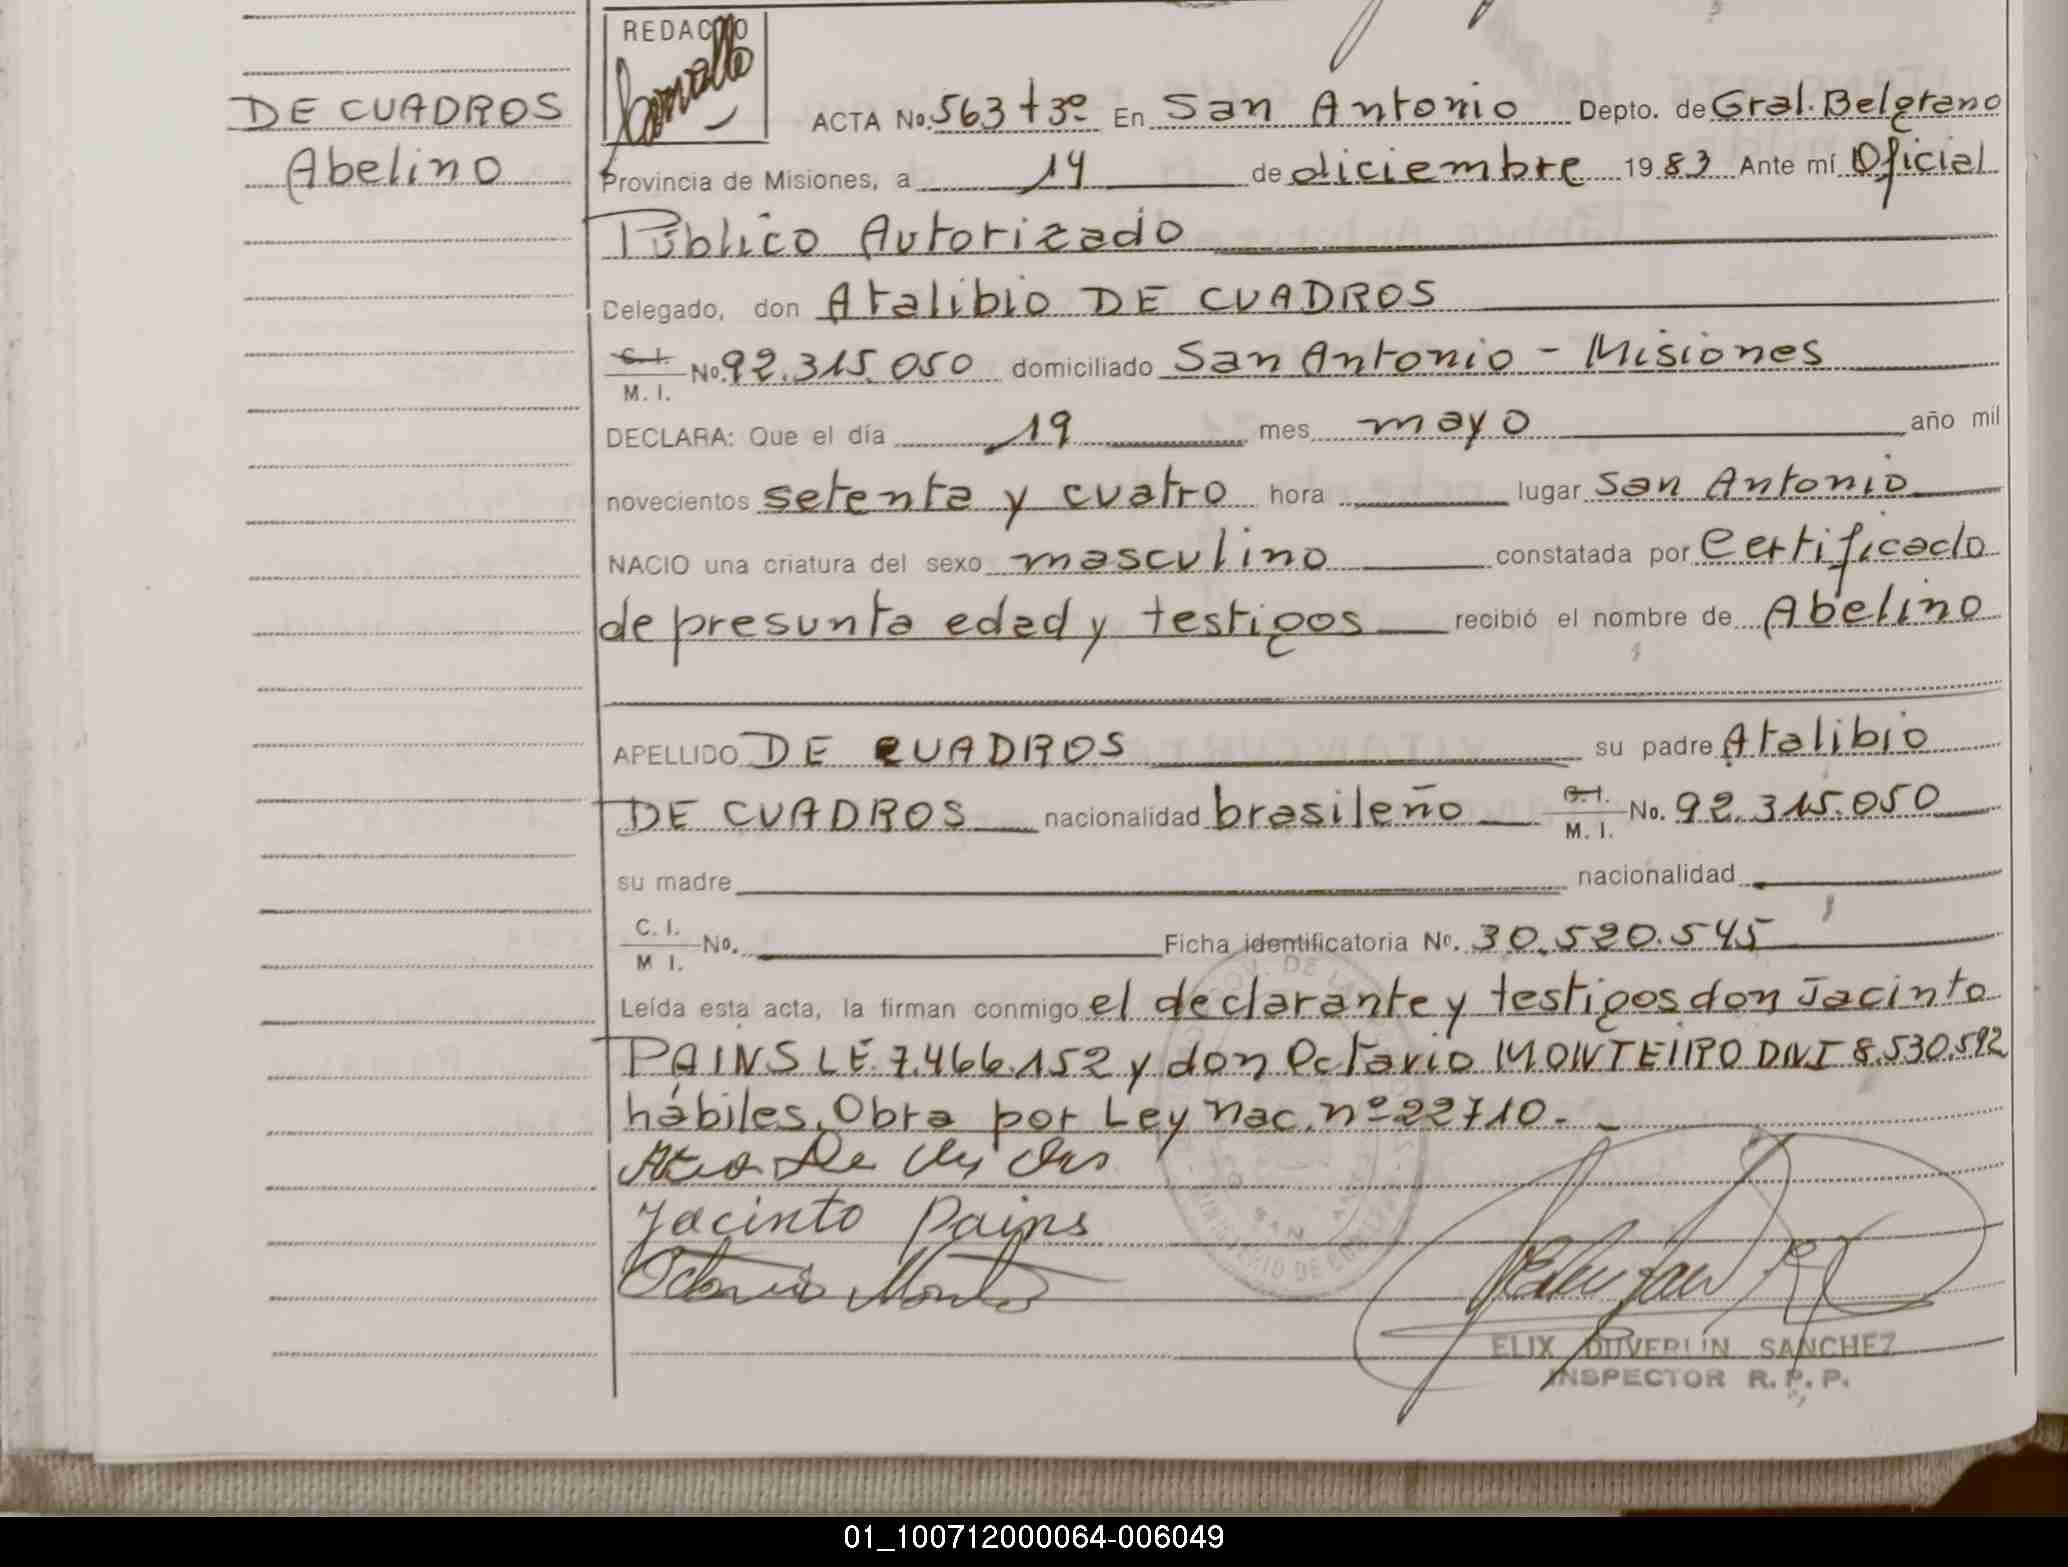 REDACTO
DE CUADROS
Abelino
ACTA No. 563 t 3º En San Antonio Depto. de Gral. Belgrano
Provincia de Misiones, a 14 de diciembre 1983 Ante mí Oficial
Público Autorizado
Delegado, don Atalibio DE CUADROS
C. I. M. I. No. 92.315.050 domiciliado San Antonio - Misiones
DECLARA: Que el día 19 mes mayo año mil
novecientos setenta y cuatro hora lugar San Antonio
NACIO una criatura del sexo masculino constatada por Certificado
de presunta edad y testigos recibió el nombre de Abelino
APELLIDO DE CUADROS su padre Atalibio
DE CUADROS nacionalidad brasileño C. I. M. I. No. 92.315.050
su madre nacionalidad
C. I. M I. No. Ficha identificatoria No. 30.520.545
Leída esta acta, la firman conmigo el declarante y testigos don Jacinto
PAINS LE 7.466.152 y don Octavio MONTEIRO DNI 8.530.592
hábiles. Obra por Ley Nac. nº 22710.-
Jacinto Pains
ELIX DUVERLIN SANCHEZ
INSPECTOR R. P. P.
01_100712000064-006049